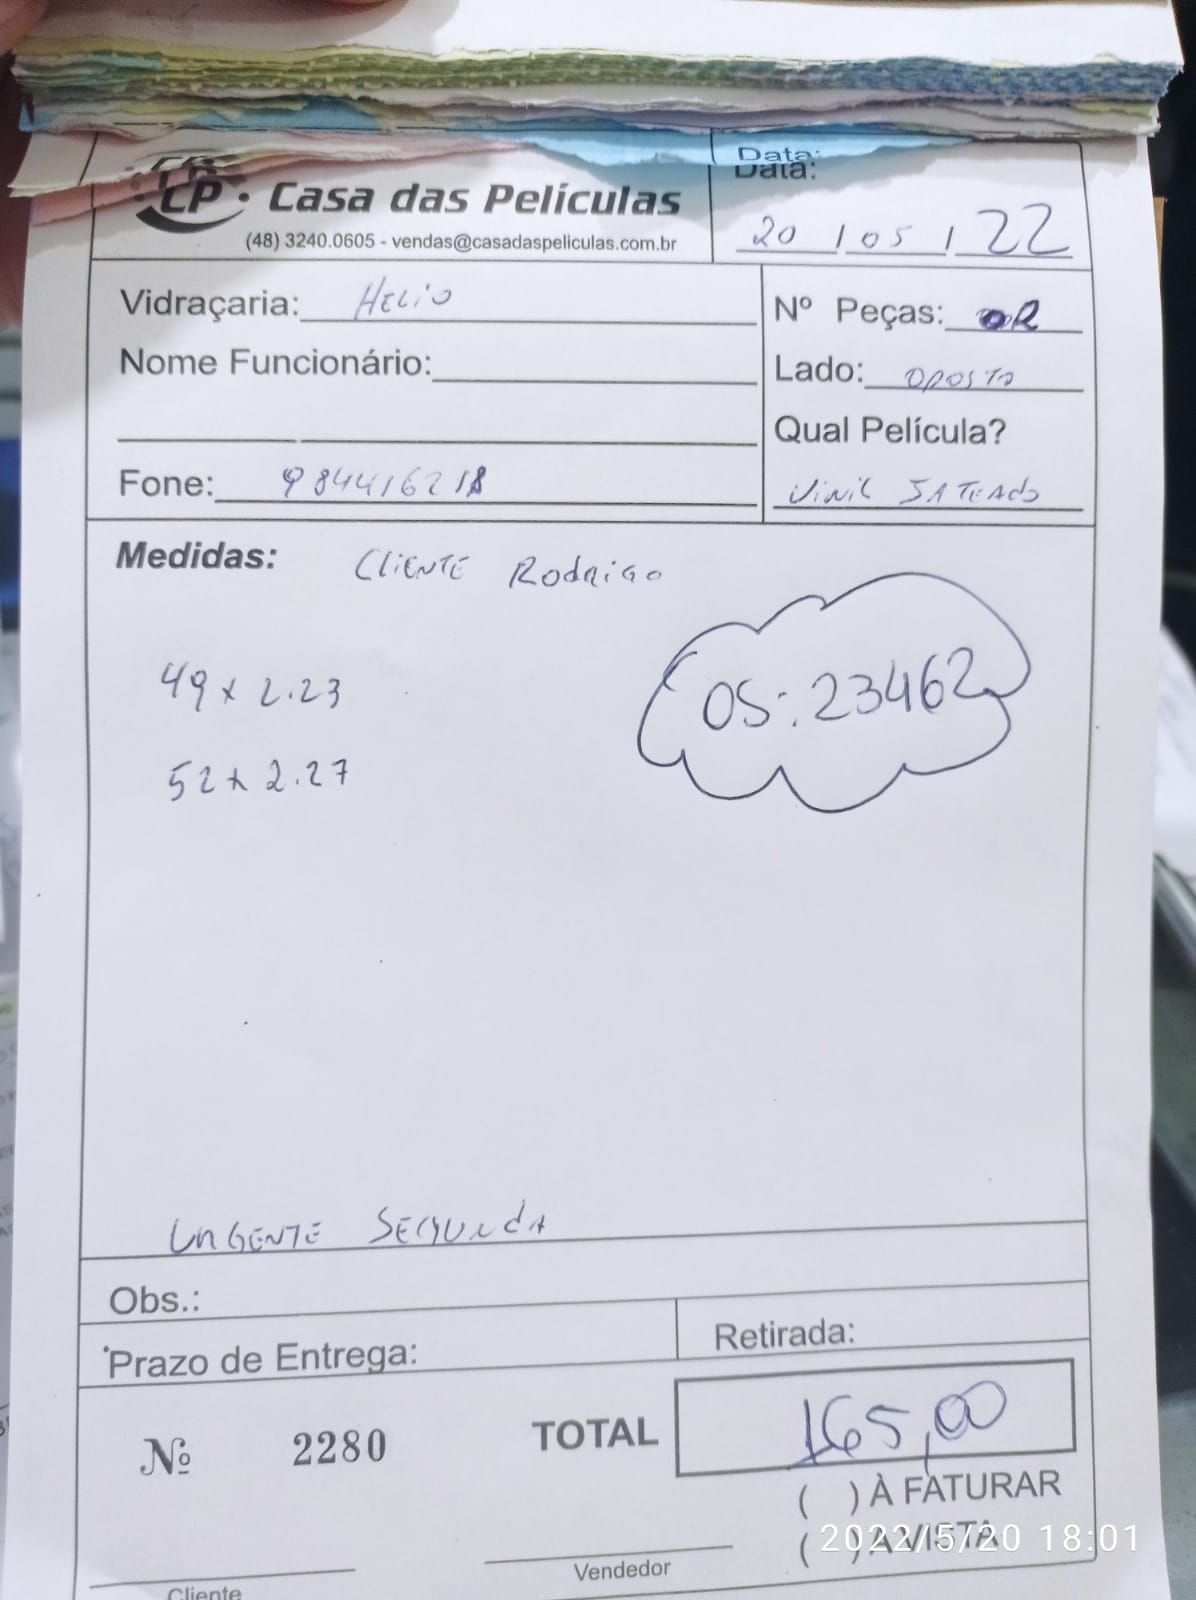 Data:
Data:
CP • Casa das Películas
(48) 3240.0605 - vendas@casadaspeliculas.com.br
20 / 05 / 22
Vidraçaria: HELIO
Nº Peças: 02
Nome Funcionário:
Lado: OPOSTO
Qual Película?
Fone: 984416218
VINIL JATEADO
Medidas: CLIENTE RODRIGO
49 x 2.23
OS: 23462
52 x 2.27
URGENTE SEGUNDA
Obs.:
Prazo de Entrega:
Retirada:
Nº 2280
TOTAL 165,00
( ) À FATURAR
( ) A VISTA
2022/5/20 18:01
Vendedor
Cliente